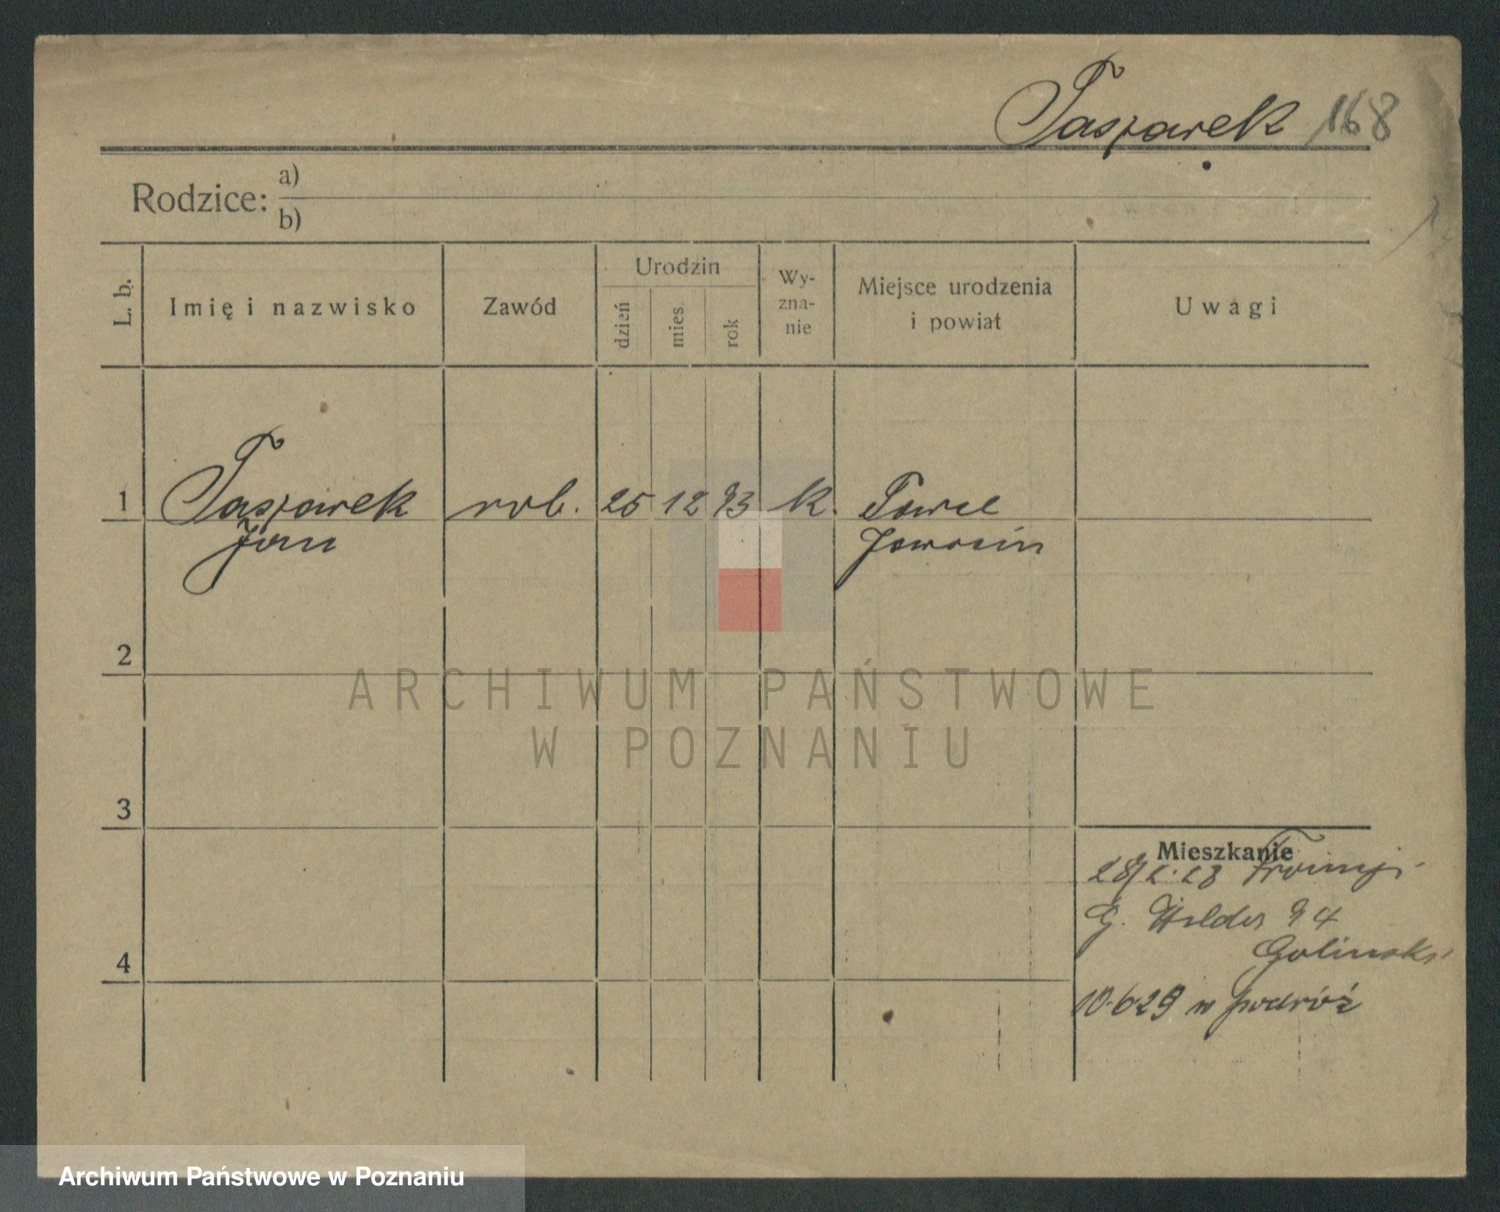 Taszarek 168
Rodzice: a)
b)
L. b.
Imię i nazwisko
Zawód
Urodzin
dzień
mies.
rok
Wy-
zna-
nie
Miejsce urodzenia
i powiat
Uwagi
1 Taszarek rob. 25 12 93 k.
Jan
Jarocin
2
3
4
Mieszkanie
G. Wilda 94
Goliński
10.6.29 w podróż
ARCHIWUM PAŃSTWOWE
W POZNANIU
Archiwum Państwowe w Poznaniu